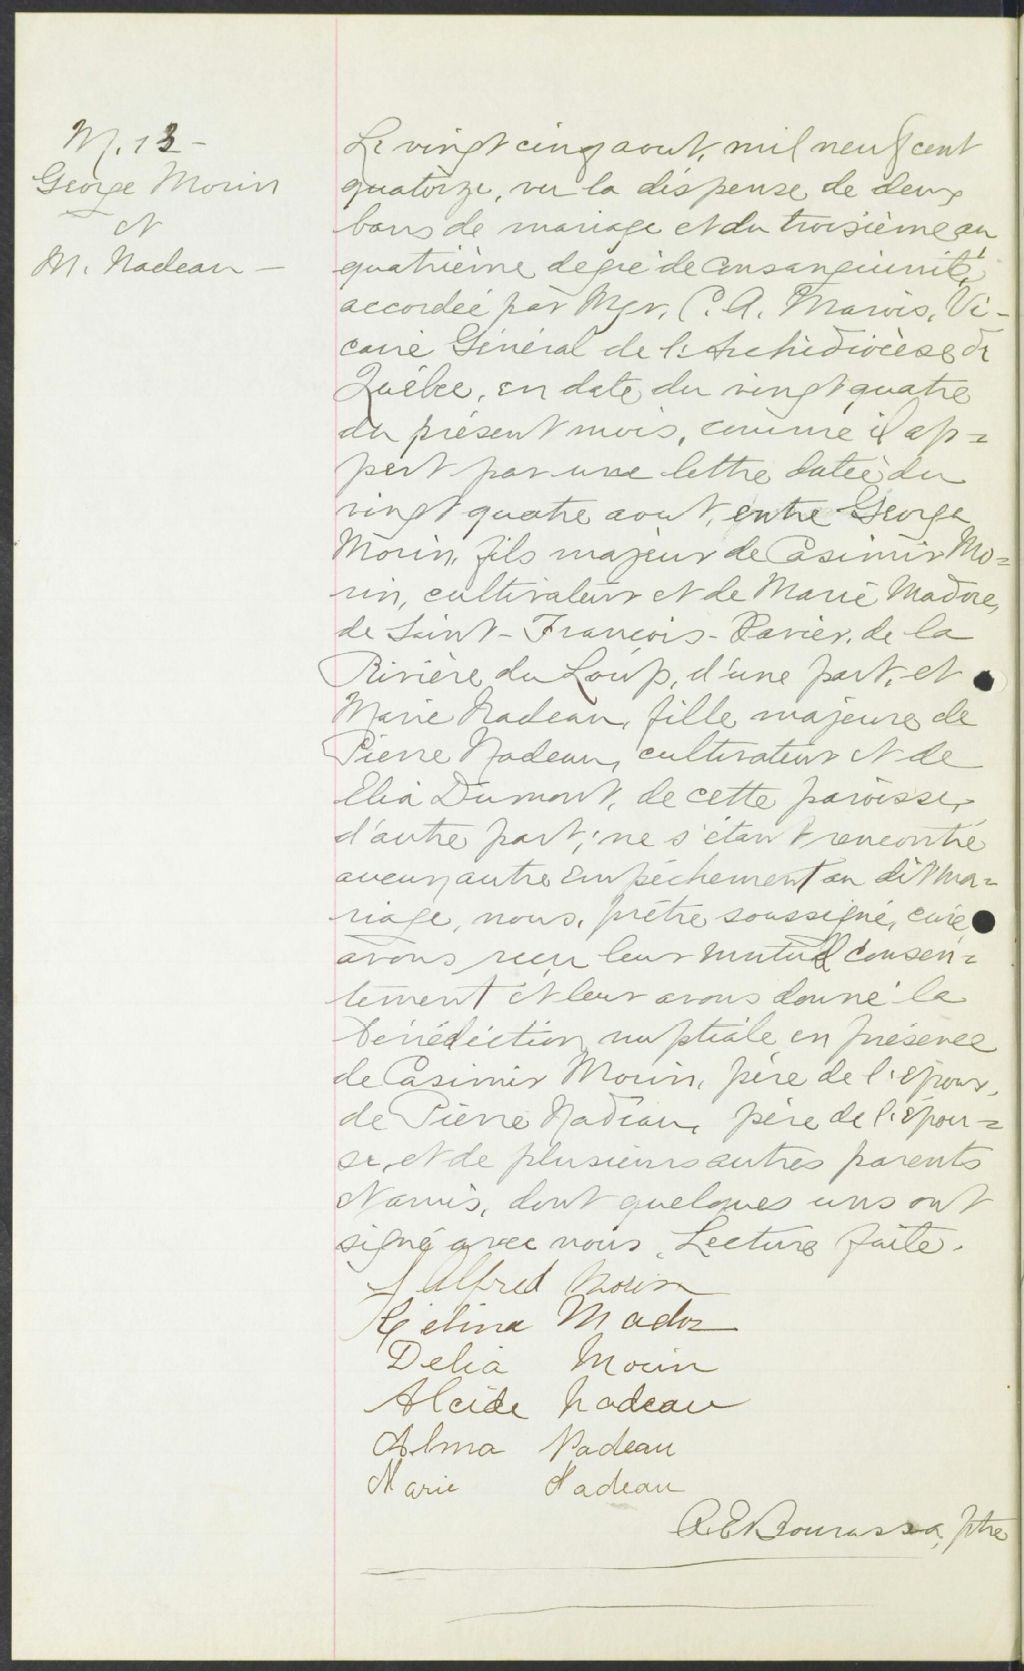 M. 13 -
George Morin
et
M. Nadeau -
Le vingt cinq aout, mil neuf cent
quatorze, vu la dispense de deux
bans de mariage et du troisième au
quatrième degré de consanguinité,
accordée par Mgr. C. A. Marois, Vi-
caire Général de l'Archidiocèse de
Québec, en date du vingt quatre
du présent mois, comme il ap=
pert par une lettre datée du
vingt quatre aout, entre George
Morin, fils majeur de Casimir Mo=
rin, cultivateur et de Marie Madore,
de Saint-François-Xavier, de la
Rivière du Loup, d'une part, et
Marie Nadeau, fille majeure de
Pierre Nadeau, cultivateur et de
Elia Dumont, de cette paroisse,
d'autre part; ne s'étant rencontré
aucun autre empêchement au dit ma=
riage, nous, prêtre soussigné, curé
avons reçu leur mutuel consen=
tement et leur avons donné la
bénédiction nuptiale en présence
de Casimir Morin, père de l'époux,
de Pierre Nadeau, père de l'épou=
se, et de plusieurs autres parents
et amis, dont quelques uns ont
signé avec nous. Lecture faite.
Alfred Morin
Zélina Mador
Delia Morin
Alcide Nadeau
Alma Nadeau
Marie Nadeau
A. E. Bourassa, ptre